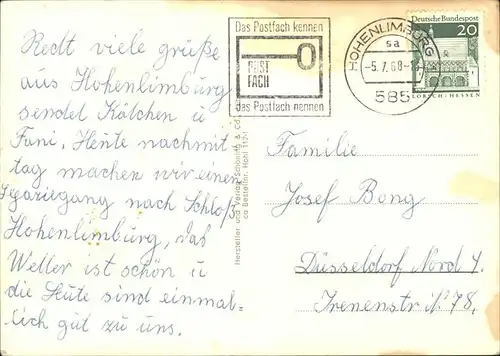 Redt viele grüße
aus Hohenlimburg
sendet Kätchen u
Fani. Heute nachmit
tag machen wir einen
Spaziegang nach Schloß
Hohenlimburg, das
Wetter ist schön u
die Leute sind einmal-
lich gut zu uns.
Das Postfach kennen
POST
FACH
das Postfach nennen
HOHENLIMBURG
sa
-5.7.68-
585
Deutsche Bundespost
20
LORSCH/HESSEN
Hersteller und Verlag Schöning & Co.
Bestellnr. Hohl 1121
Familie
Josef Bong
Düsseldorf Nord 4.
Irenenstr. № 78,